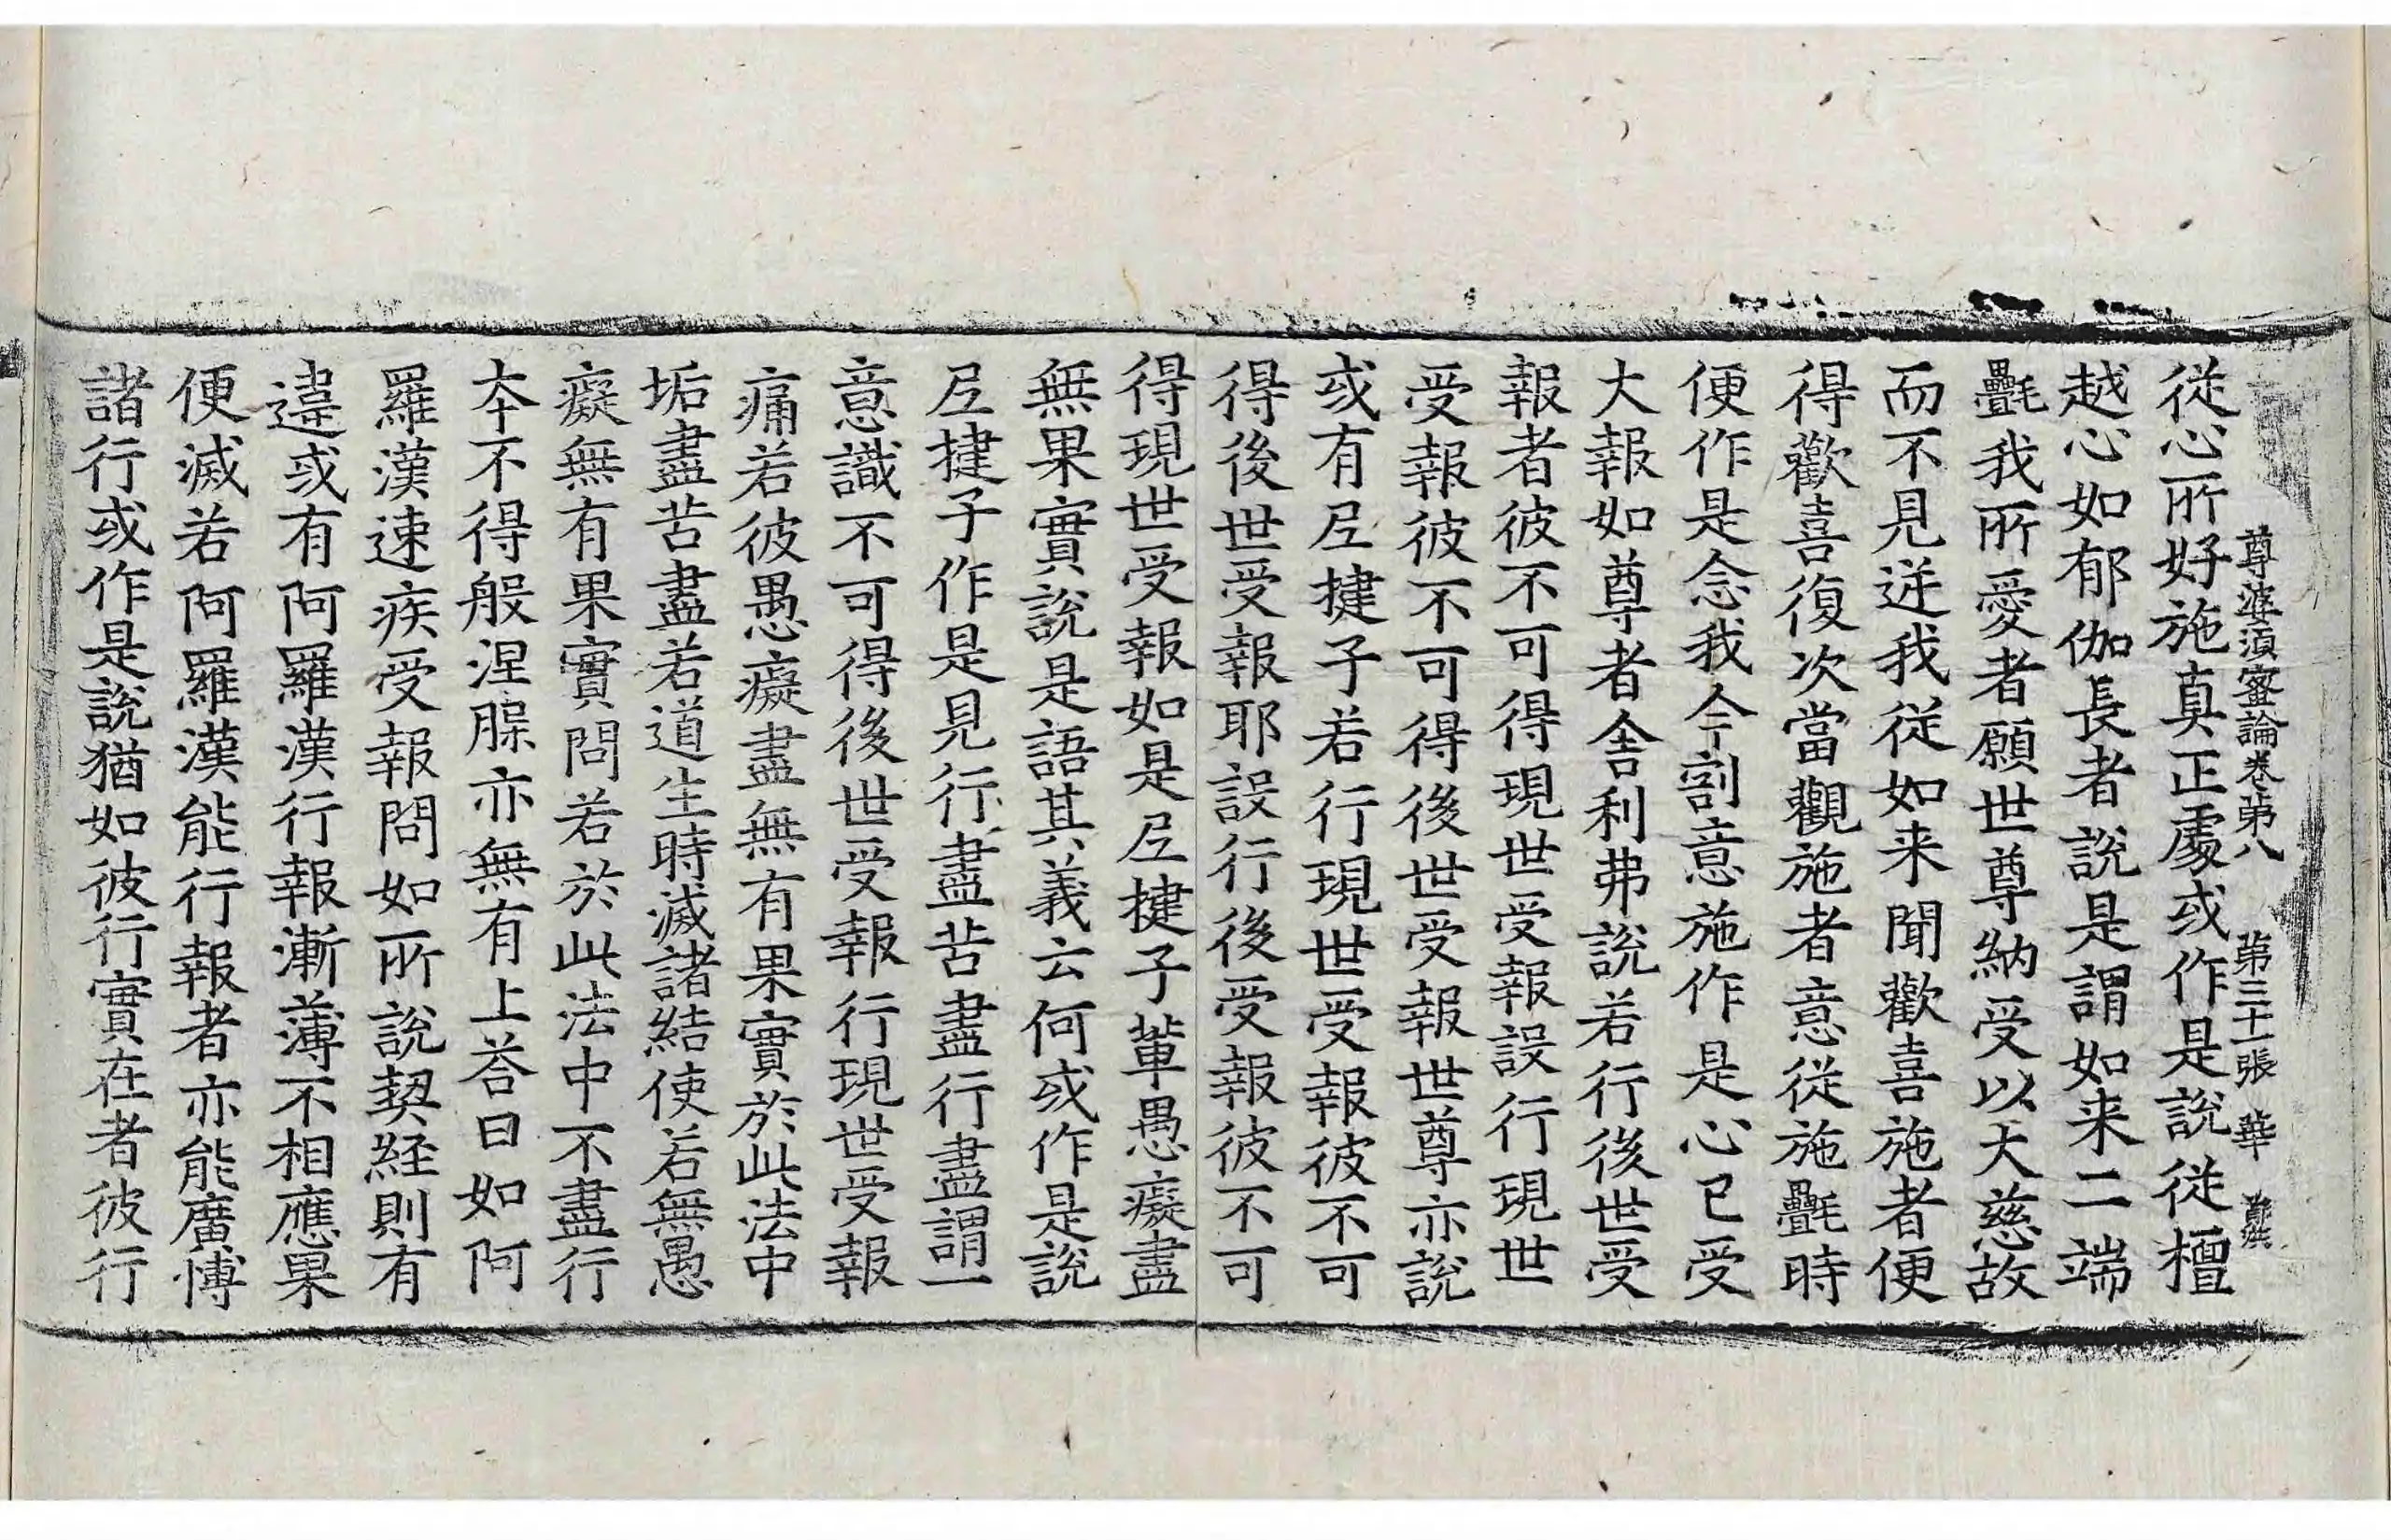 尊婆須蜜論卷第八 第三十一張 華
從心所好施真正處或作是說從檀
越心如郁伽長者說是謂如来二端
㲲我所愛者願世尊納受以大慈故
而不見逆我從如来聞歡喜施者便
得歡喜復次當觀施者意從施㲲時
便作是念我今割意施作是心已受
大報如尊者舍利弗說若行後世受
報者彼不可得現世受報設行現世
受報彼不可得後世受報世尊亦說
或有尼揵子若行現世受報彼不可
得後世受報耶設行後受報彼不可
得現世受報如是尼揵子輩愚癡盡
無果實說是語其義云何或作是說
尼揵子作是見行盡苦盡行盡謂一
意識不可得後世受報行現世受報
痛若彼愚癡盡無有果實於此法中
垢盡苦盡若道生時滅諸結使若無愚
癡無有果實問若於此法中不盡行
本不得般涅槃亦無有上荅曰如阿
羅漢速疾受報問如所說契経則有
違或有阿羅漢行報漸薄不相應果
便滅若阿羅漢能行報者亦能廣愽
諸行或作是說猶如彼行實在者彼行